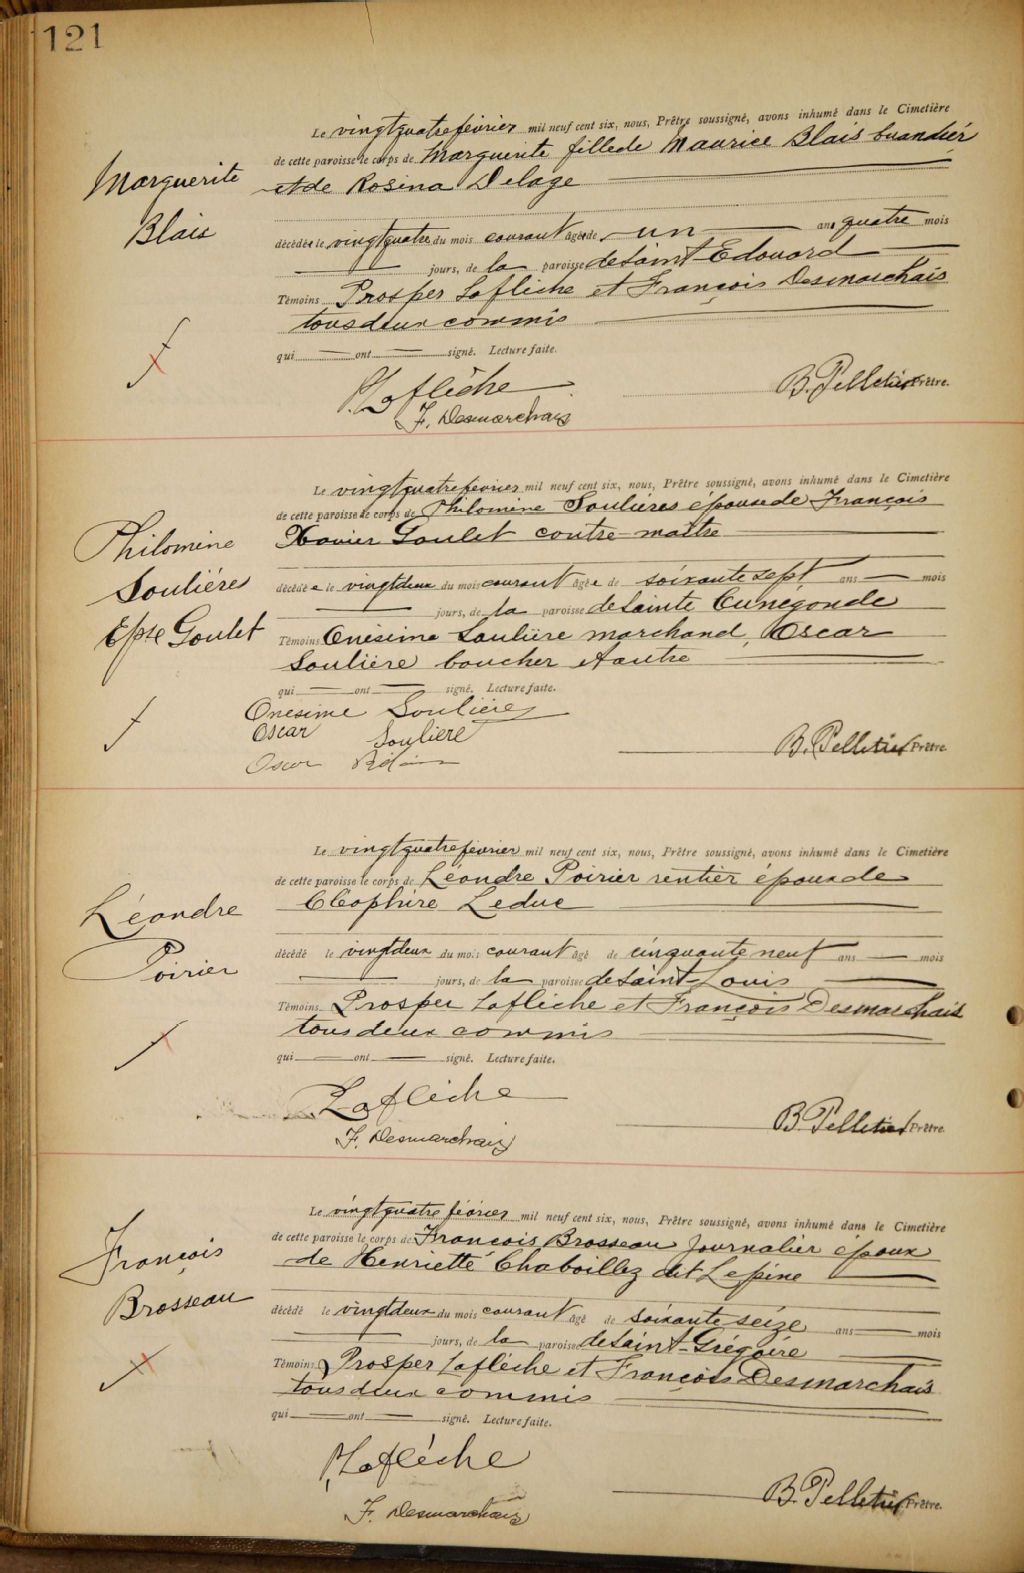 121
Le vingtquatre fevrier mil neuf cent six, nous, Prêtre soussigné, avons inhumé dans le Cimetière
de cette paroisse le corps de Marguerite fille de Maurice Blais buandier
Marguerite
et de Rosina Delage
Blais
décédée le vingtquatre du mois courant âgée de un an quatre mois
jours, de la paroisse de Saint-Edouard
Témoins Prosper Laflèche et François Desmarchais
tous deux commis
qui ont signé. Lecture faite.
P. Laflèche
B. Pelletier Prêtre.
F. Desmarchais
Le vingtquatre fevrier mil neuf cent six, nous, Prêtre soussigné, avons inhumé dans le Cimetière
de cette paroisse le corps de Philomine Soulières épouse de François
Philomine
Xavier Goulet contre-maître
Soulières
décédée le vingtdeux du mois courant âgée de soixante sept ans mois
jours, de la paroisse de Sainte Cunégonde
Epse Goulet
Témoins Onésime Soulière marchand, Oscar
Soulière boucher et autre
qui ont signé. Lecture faite.
Onesime Soulières
Oscar Souliere
B. Pelletier Prêtre.
Oscar
Le vingtquatre fevrier mil neuf cent six, nous, Prêtre soussigné, avons inhumé dans le Cimetière
de cette paroisse le corps de Léandre Poirier rentier époux de
Léandre
Cléophire Leduc
Poirier
décédé le vingtdeux du mois courant âgé de cinquante neuf ans mois
jours, de la paroisse de Saint-Louis
Témoins Prosper Laflèche et François Desmarchais
tous deux commis
qui ont signé. Lecture faite.
P. Laflèche
B. Pelletier Prêtre.
F. Desmarchais
Le vingtquatre février mil neuf cent six, nous, Prêtre soussigné, avons inhumé dans le Cimetière
de cette paroisse le corps de François Brosseau journalier époux
François
de Henriette Chaboillez dit Lepine
Brosseau
décédé le vingtdeux du mois courant âgé de soixante seize ans mois
jours, de la paroisse de Saint-Grégoire
Témoins Prosper Laflèche et François Desmarchais
tous deux commis
qui ont signé. Lecture faite.
P. Laflèche
B. Pelletier Prêtre.
F. Desmarchais